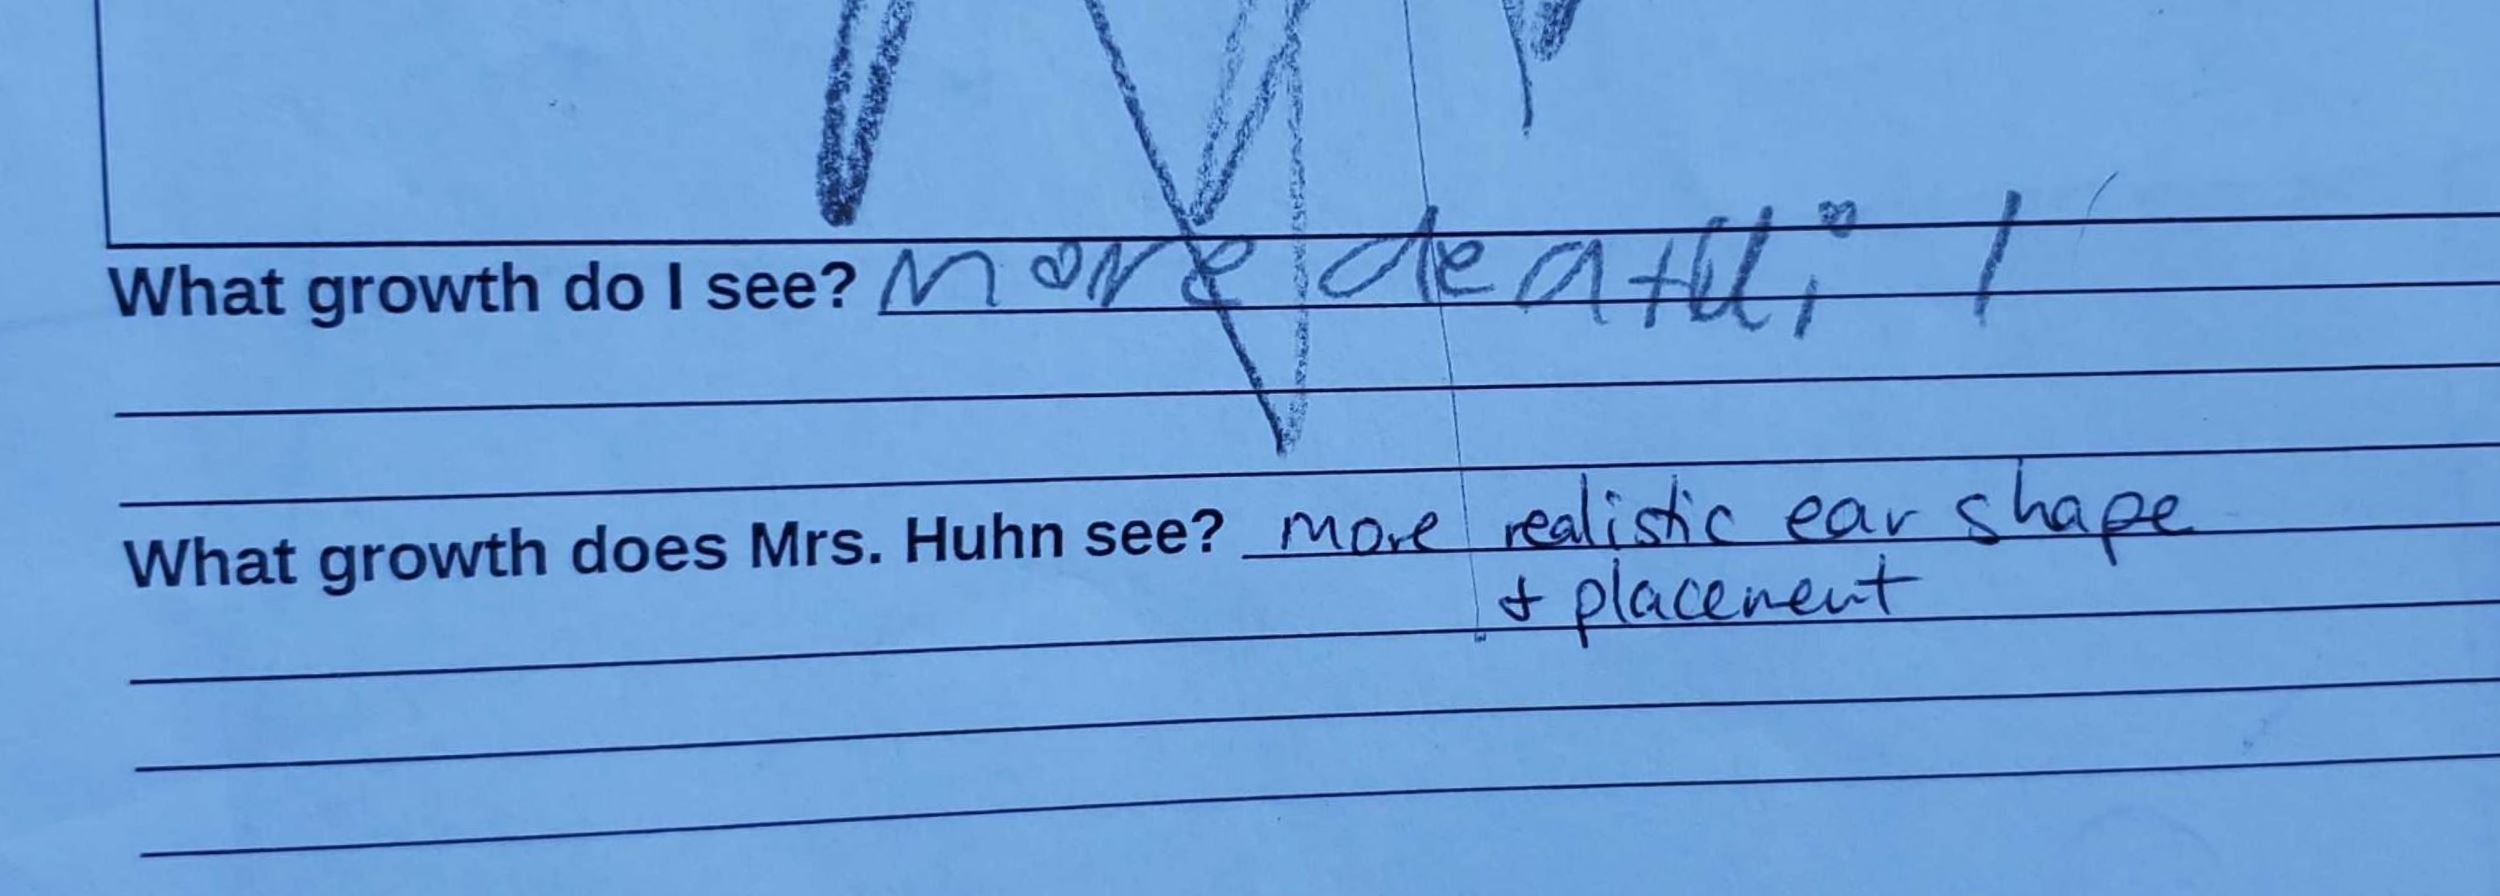 What growth do I see? more deatil
What growth does Mrs. Huhn see? more realistic ear shape
& placement